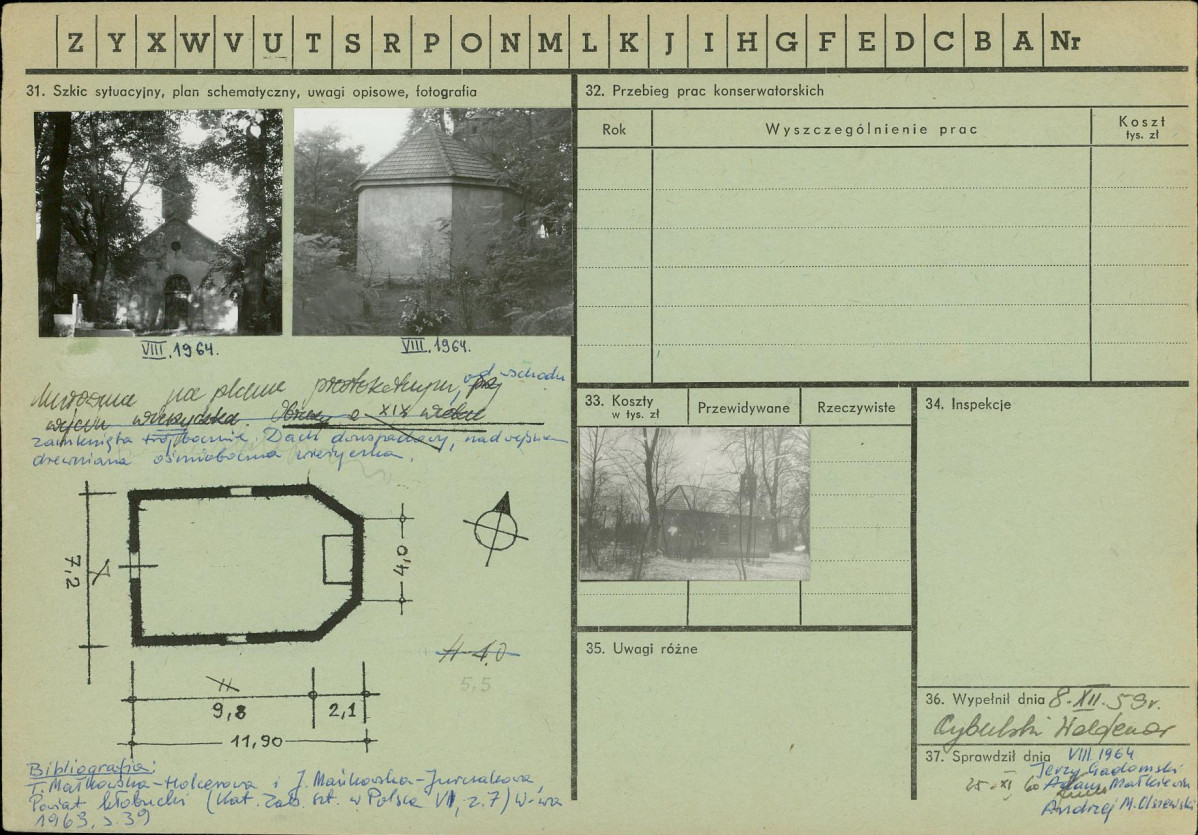 Z Y X W V U T S R P O N M L K J I H G F E D C B A Nr
31. Szkic sytuacyjny, plan schematyczny, uwagi opisowe, fotografia
VIII.1964.
VIII.1964.
Murowana na planie prostokątnym, od wschodu
wejściu wieżyczka. o XIX wieku
zamknięta trójbocznie. Dach dwuspadowy, nad wejściem
drewniana ośmioboczna wieżyczka.
7,2
4,0
H-4,0
5,5
11
9,8
2,1
11,90
Bibliografia:
T. Małkowska-Holcerowa i J. Mańkowska-Jurczakowa,
Powiat kłobucki (Kat. Zab. szt. w Polsce VI, z.7) W-wa
1963, s.39
32. Przebieg prac konserwatorskich
Rok
Wyszczególnienie prac
Koszt
tys. zł
33. Koszty
w tys. zł
Przewidywane
Rzeczywiste
34. Inspekcje
35. Uwagi różne
36. Wypełnił dnia 8-XII-59r.
Cybulski Waldemar
37. Sprawdził dnia VIII 1964
Jerzy Gadomski
25-XI 60 Adam Małkiewicz
Andrzej M. Olszewski